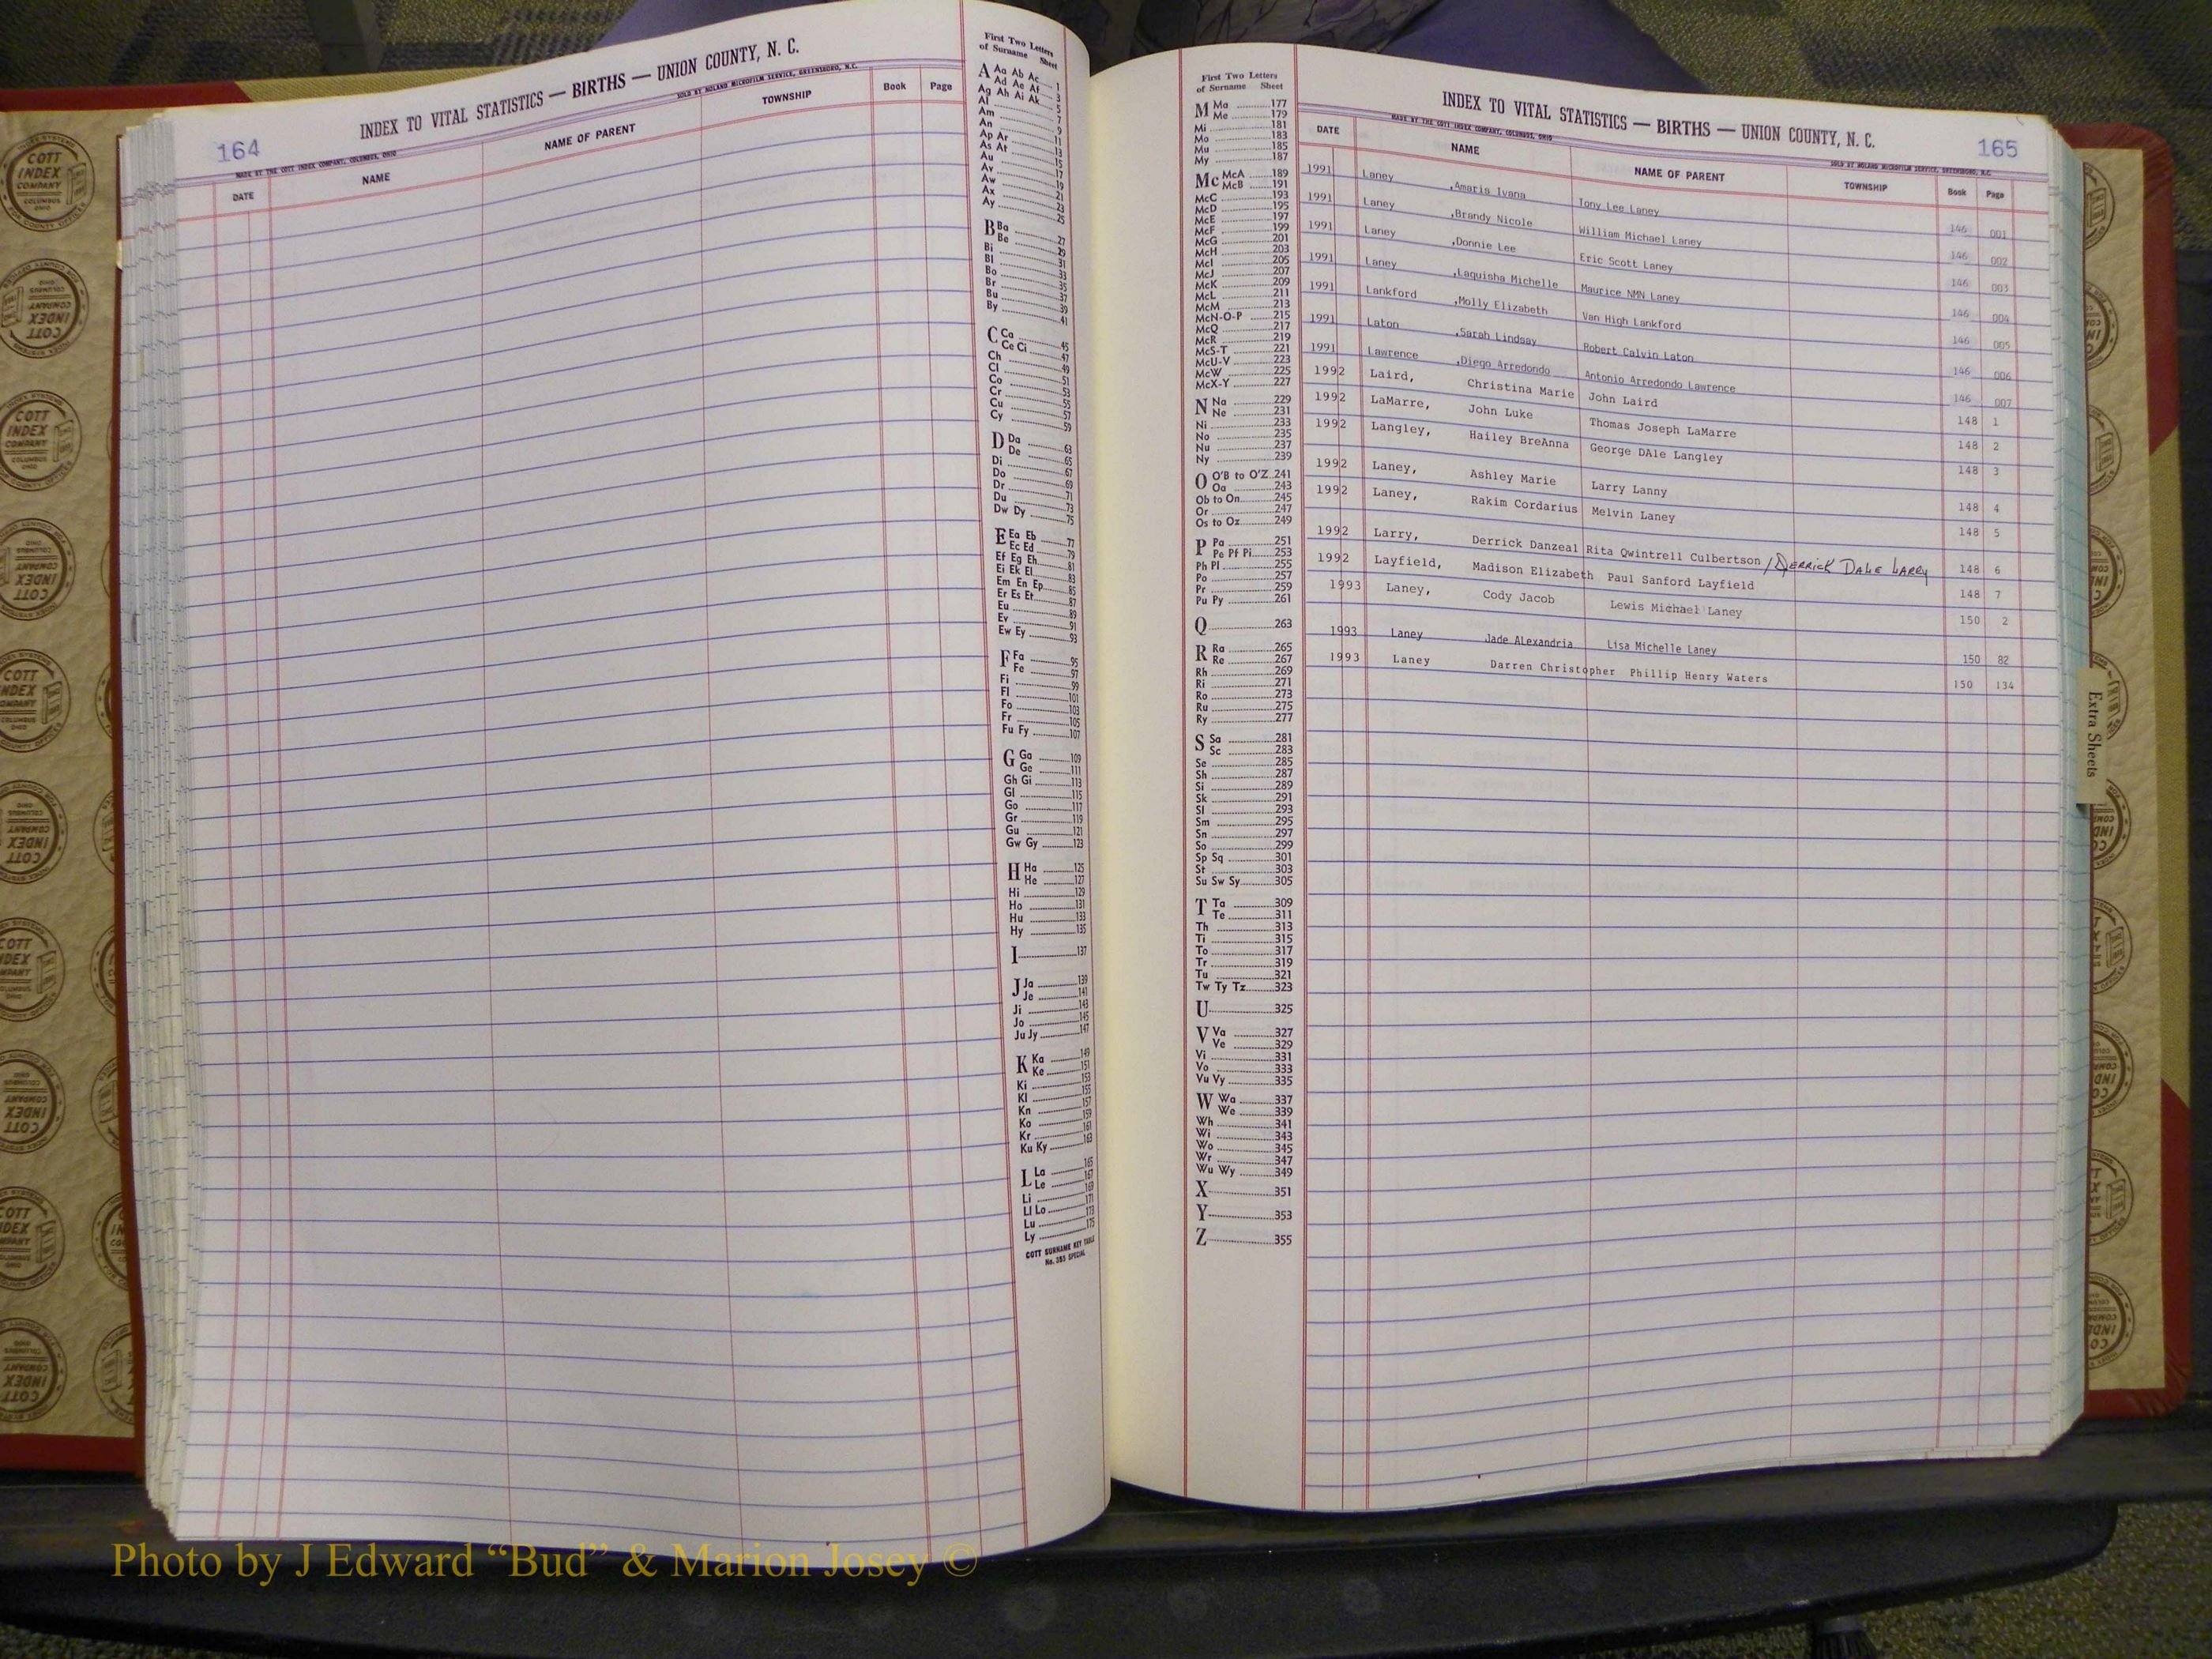 164
INDEX TO VITAL STATISTICS — BIRTHS — UNION COUNTY, N. C.
MADE BY THE COTT INDEX COMPANY, COLUMBUS, OHIO
SOLD BY NOLAND MICROFILM SERVICE, GREENSBORO, N.C.
DATE NAME NAME OF PARENT TOWNSHIP Book Page
First Two Letters
of Surname Sheet
A Aa Ab Ac 1
Ad Ae Af 3
Ag Ah Ai Ak 5
Al 7
Am 9
An 11
Ap Ar 13
As At 15
Au 17
Av 19
Aw 21
Ax 23
Ay 25
B Ba 27
Be 29
Bi 31
Bl 33
Bo 35
Br 37
Bu 39
By 41
C Ca 45
Ce Ci 47
Ch 49
Cl 51
Co 53
Cr 55
Cu 57
Cy 59
D Da 63
De 65
Di 67
Do 69
Dr 71
Du 73
Dw Dy 75
E Ea Eb 77
Ec Ed 79
Ef Eg Eh 81
Ei Ek El 83
Em En Ep 85
Er Es Et 87
Eu 89
Ev 91
Ew Ey 93
F Fa 95
Fe 97
Fi 99
Fl 101
Fo 103
Fr 105
Fu Fy 107
G Ga 109
Ge 111
Gh Gi 113
Gl 115
Go 117
Gr 119
Gu 121
Gw Gy 123
H Ha 125
He 127
Hi 129
Ho 131
Hu 133
Hy 135
I 137
J Ja 139
Je 141
Ji 143
Jo 145
Ju Jy 147
K Ka 149
Ke 151
Ki 153
Kl 155
Kn 157
Ko 159
Kr 161
Ku Ky 163
L La 165
Le 167
Li 169
Ll Lo 171
Lu 173
Ly 175
COTT SURNAME KEY TABLE
No. 355 SPECIAL
First Two Letters
of Surname Sheet
M Ma 177
Me 179
Mi 181
Mo 183
Mu 185
My 187
Mc McA 189
McB 191
McC 193
McD 195
McE 197
McF 199
McG 201
McH 203
McI 205
McJ 207
McK 209
McL 211
McM 213
McN-O-P 215
McQ 217
McR 219
McS-T 221
McU-V 223
McW 225
McX-Y 227
N Na 229
Ne 231
Ni 233
No 235
Nu 237
Ny 239
O O'B to O'Z 241
Oa 243
Ob to On 245
Or 247
Os to Oz 249
P Pa 251
Pe Pf Pi 253
Ph Pl 255
Po 257
Pr 259
Pu Py 261
Q 263
R Ra 265
Re 267
Rh 269
Ri 271
Ro 273
Ru 275
Ry 277
S Sa 281
Sc 283
Se 285
Sh 287
Si 289
Sk 291
Sl 293
Sm 295
Sn 297
So 299
Sp Sq 301
St 303
Su Sw Sy 305
T Ta 309
Te 311
Th 313
Ti 315
To 317
Tr 319
Tu 321
Tw Ty Tz 323
U 325
V Va 327
Ve 329
Vi 331
Vo 333
Vu Vy 335
W Wa 337
We 339
Wh 341
Wi 343
Wo 345
Wr 347
Wu Wy 349
X 351
Y 353
Z 355
INDEX TO VITAL STATISTICS — BIRTHS — UNION COUNTY, N. C.
165
MADE BY THE COTT INDEX COMPANY, COLUMBUS, OHIO
SOLD BY NOLAND MICROFILM SERVICE, GREENSBORO, N.C.
DATE NAME NAME OF PARENT TOWNSHIP Book Page
1991 Laney ,Amaris Ivana Tony Lee Laney 146 001
1991 Laney ,Brandy Nicole William Michael Laney 146 002
1991 Laney ,Donnie Lee Eric Scott Laney 146 003
1991 Laney ,Laquisha Michelle Maurice NMN Laney 146 004
1991 Lankford ,Molly Elizabeth Van High Lankford 146 005
1991 Laton ,Sarah Lindsay Robert Calvin Laton 146 006
1991 Lawrence ,Diego Arredondo Antonio Arredondo Lawrence 146 007
1992 Laird, Christina Marie John Laird 148 1
1992 LaMarre, John Luke Thomas Joseph LaMarre 148 2
1992 Langley, Hailey BreAnna George DAle Langley 148 3
1992 Laney, Ashley Marie Larry Lanny 148 4
1992 Laney, Rakim Cordarius Melvin Laney 148 5
1992 Larry, Derrick Danzeal Rita Qwintrell Culbertson / DERRICK DALE LARRY 148 6
1992 Layfield, Madison Elizabeth Paul Sanford Layfield 148 7
1993 Laney, Cody Jacob Lewis Michael Laney 150 2
1993 Laney Jade ALexandria Lisa Michelle Laney 150 82
1993 Laney Darren Christopher Phillip Henry Waters 150 134
Extra Sheets
COTT
INDEX
COMPANY
COLUMBUS
OHIO
Photo by J Edward “Bud” & Marion Josey ©